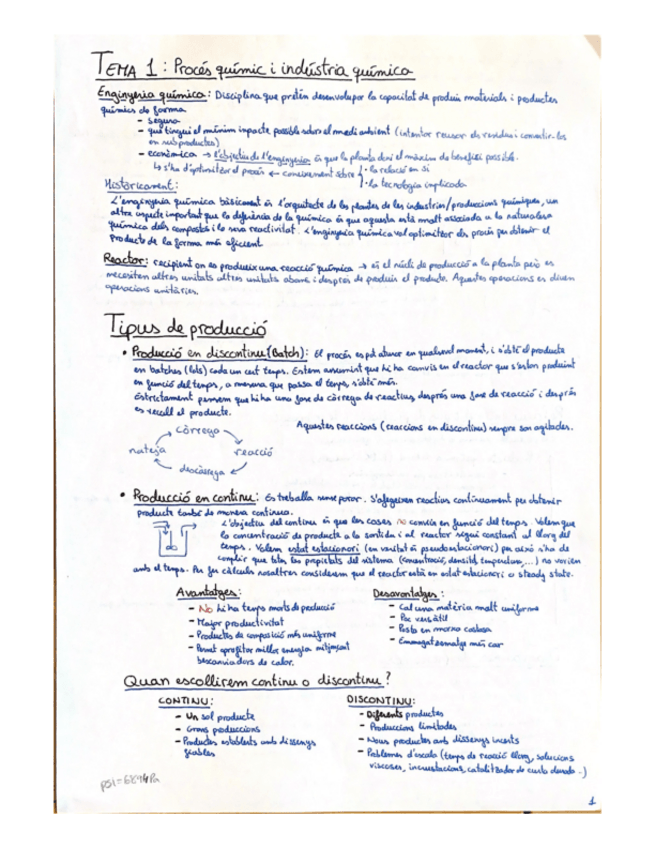 TEMA 1: Procés químic i indústria química
Enginyeria química: Disciplina que pretén desenvolupar la capacitat de produir materials i productes
químics de forma
- Segura
- que tingui el mínim impacte possible sobre el medi ambient (intentar reusar els residus i convertir-los
en subproductes)
- econòmica → l'objectiu de l'enginyeria és que la planta doni el màxim de benefici possible.
↳ s'ha d'optimitzar el procés ← coneixement sobre { · la relació en si
· la tecnologia implicada
Històricament:
L'enginyeria química bàsicament és l'arquitecte de les plantes de les indústries/produccions químiques, un
altre aspecte important que la diferència de la química és que aquesta està molt associada a la naturalesa
química dels compostos i la seva reactivitat. L'enginyeria química vol optimitzar els procés per obtenir el
producte de la forma més eficient.
Reactor: recipient on es produeix una reacció química → és el nucli de producció a la planta però es
necessiten altres unitats altres unitats abans i després de produir el producte. Aquestes operacions es diuen
operacions unitàries.
Tipus de producció
• Producció en discontinu (Batch): El procés es pot aturar en qualsevol moment, i s'obté el producte
en batches (lots) cada un cert temps. Estem assumint que hi ha canvis en el reactor que s'estan produint
en funció del temps, a mesura que passa el temps, s'obté més.
Estrictament pensem que hi ha una fase de càrrega de reactius, després una fase de reacció i després
es recull el producte.
Aquestes reaccions (reaccions en discontinu) sempre son agitades.
càrrega
neteja
reacció
descàrrega
• Producció en continu: Es treballa sense parar. S'afegeixen reactius contínuament per obtenir
producte també de manera contínua.
L'objectiu del continu és que les coses no canviïn en funció del temps. Volem que
la concentració de producte a la sortida i al reactor sigui constant al llarg del
temps. Volem estat estacionari (en varitat és pseudoestacionari) per això s'ha de
complir que totes les propietats del sistema (concentració, densitat, temperatura,...) no varien
amb el temps. Per fer càlculs nosaltres considerem que el reactor està en estat estacionari o steady state.
Avantatges:
- No hi ha temps morts de producció
- Major productivitat
- Productes de composició més uniforme
- Permet aprofitar millor energia mitjançant
bescanviadors de calor.
Desavantatges:
- Cal una matèria molt uniforme
- Poc versàtil
- Posta en marxa costosa
- Emmagatzematge més car
Quan escollirem continu o discontinu?
CONTINU:
- Un sol producte
- Grans produccions
- Productes establerts amb dissenys
fiables
DISCONTINU:
- Diferents productes
- Produccions limitades
- Nous productes amb dissenys incerts
- Problemes d'escala (temps de reacció llarg, solucions
viscoses, incrustacions, catalitzador de curta durada...)
psi = 6894 Pa
1